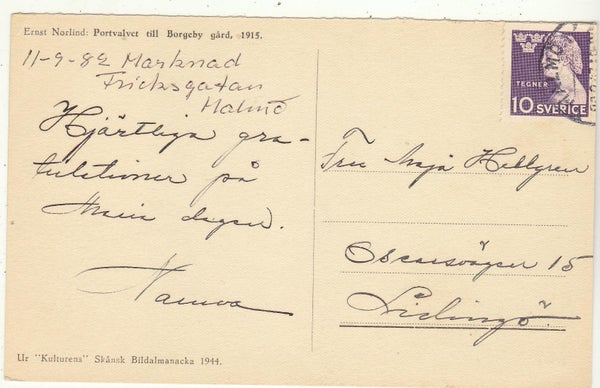 Ernst Norlind: Portvalvet till Borgeby gård, 1915.
11-9-82 Marknad
Fricksgatan
Malmö
Hjärtliga gra-
tulationer på
dagen.
TEGNER
10 SVERIGE
MALMÖ
Fru Maja Hellgren
Oscarsvägen 15
Lidingö
Ur "Kulturens" Skånsk Bildalmanacka 1944.